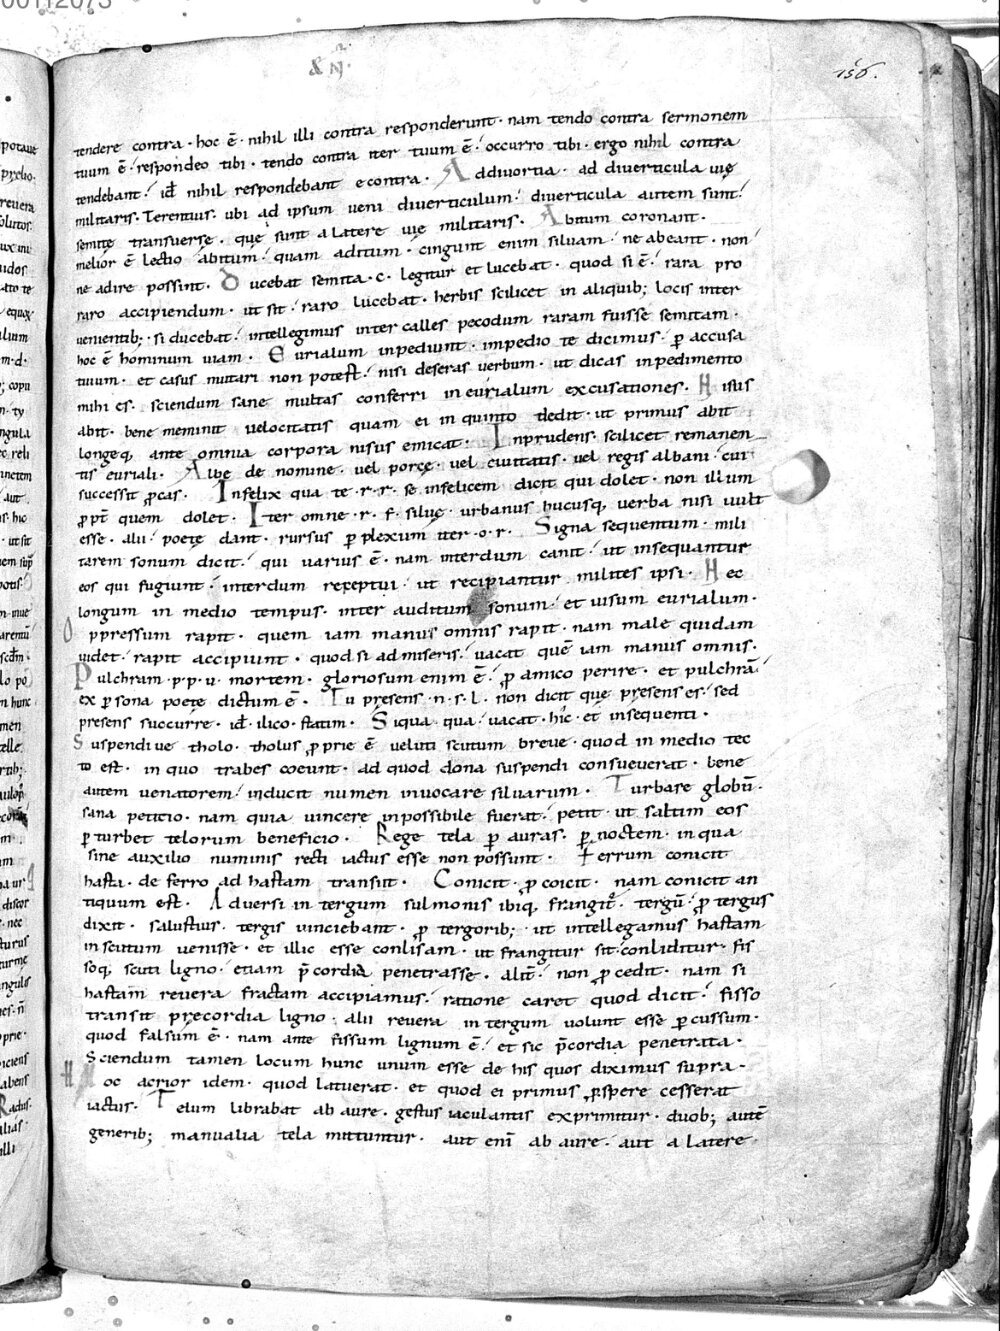 00112073
&N.
156.
tendere contra · hoc ē · nihil illi contra responderunt · nam tendo contra sermonem
tuum ē · respondeo tibi · tendo contra iter tuum ē · occurro tibi · ergo nihil contra
tendebant · id nihil respondebant econtra · Addivortia · ad diverticula vię
militaris · Terentius · ubi ad ipsum veni diverticulum · diverticula autem sunt
semitę transversę · quę sunt a latere vię militaris · Abitum coronant ·
melior ē lectio abitum · quam aditum · cingunt enim silvam · ne abeant · non
ne adire possint · Ducebat semita · c · legitur et lucebat · quod si ē · rara pro
raro accipiendum · ut sit · raro lucebat · herbis scilicet in aliquib; locis inter
venientib; · si ducebat · intellegimus inter calles pecodum raram fuisse semitam ·
hoc ē hominum viam · Eurialum inpediunt · impedio te dicimus · p accusa
tivum · et casus mutari non potest · nisi deseras verbum · ut dicas inpedimento
mihi es · sciendum sane multas conferri in eurialum excusationes · Nisus
abit · bene meminit velocitatis quam ei in quinto dedit · ut primus abit
longeq, ante omnia corpora nisus emicat · Inprudens · scilicet remanen
tis euriali · Albę de nomine · vel porcę · vel civitatis · vel regis albani · cui
successit pcas · Infelix qua te · r · r · se infelicem dicit qui dolet · non illum
ppt quem dolet · Iter omne · r · f · silvę · urbanus hucusq, verba nisi vult
esse · alii poetę dant · rursus pplexum iter · o · r · Signa sequentum · mili
tarem sonum dicit · qui varius ē · nam interdum canit · ut insequantur
eos qui fugiunt · interdum receptui · ut recipiantur milites ipsi · Nec
longum in medio tempus · inter auditum sonum · et visum eurialum ·
Oppressum rapit · quem iam manus omnis rapit · nam male quidam
videt · rapit accipiunt · quod si admiseris · vacat quē iam manus omnis ·
Pulchram · p · p · v · mortem · gloriosum enim ē · p amico perire · et pulchrā
ex psona poetę dictum ē · Tu presens · n · s · l · non dicit quę presens es · sed
presens succurre · id ilico · statim · Siqua qua · vacat · hic · et insequenti ·
Suspendive tholo · tholus pprie ē veluti scutum breve · quod in medio tec
to est · in quo trabes coeunt · ad quod dona suspendi consueverat · bene
autem venatorem · inducit numen invocare silvarum · Turbare globū ·
sana petitio · nam quia vincere inpossibile fuerat · petit · ut saltim eos
pturbet telorum beneficio · Rege tela p auras · p noctem · in qua
sine auxilio numinis recti iactus esse non possunt · Ferrum conicit
hasta · de ferro ad hastam transiit · Conicit · p coicit · nam conicit an
tiquum est · Adversi in tergum sulmonis ibiq, frangit · tergū · p tergus
dixit · salustius · tergis vinciebant · p tergorib; · ut intellegamus hastam
in scutum venisse · et illic esse conlisam · ut frangitur sit · conliditur · fis
soq, scuti ligno · etiam pcordia penetrasse · alit · non pcedit · nam si
hastam revera fractam accipiamus · ratione caret quod dicit · fisso
transit precordia ligno · alii revera in tergum volunt esse pcussum ·
quod falsum ē · nam ante fissum lignum ē · et sic pcordia penetrata ·
Sciendum tamen locum hunc unum esse de his quos diximus supra ·
Hoc acrior idem · quod latuerat · et quod ei primus pspere cesserat
iactus · Telum librabat ab aure · gestus iaculantis exprimitur · duob; autē
generib; manualia tela mittuntur · aut enī ab aure · aut a latere ·